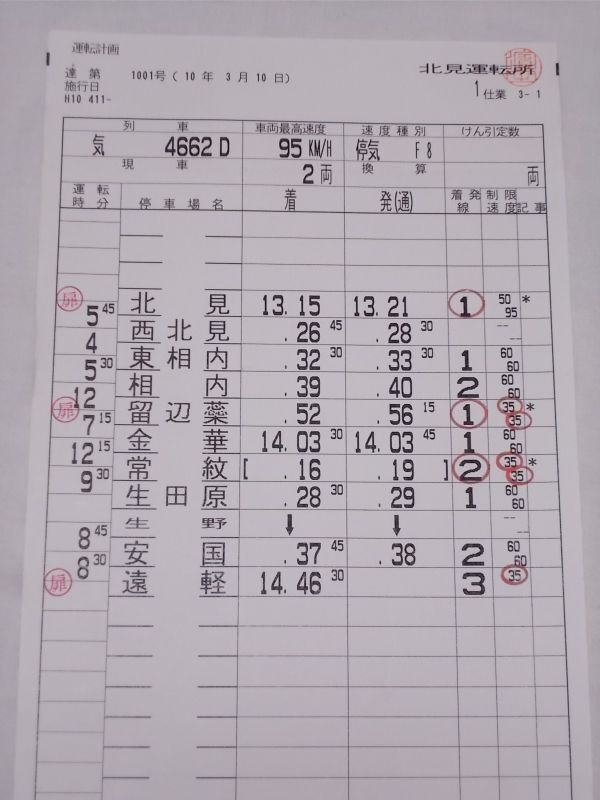 運転計画
達 第 1001号 ( 10 年 3 月 10 日)
北見運転所
施行日
H10 411-
1 仕業 3- 1
列 車 車両最高速度 速度種別 けん引定数
気 4662 D 95 KM/H 停気 F 8
現 車 換 算
2 両 両
運転時分 停車場名 着 発(通) 着発線 制限速度 記事
扉 北見 13. 15 13. 21 1 50 95 *
5 45
西北見 . 26 45 . 28 30 -- --
4
東相内 . 32 30 . 33 30 1 60 60
5 30
相内 . 39 . 40 2 60 60
12
扉 留辺蘂 . 52 . 56 15 1 35 35 *
7 15
金華 14. 03 30 14. 03 45 1 60 60
12 15
常紋 [ . 16 . 19 ] 2 35 35 *
9 30
生田原 . 28 30 . 29 1 60 60
生野 ↓ ↓ -- --
8 45
安国 . 37 45 . 38 2 60 60
8 30
扉 遠軽 14. 46 30 3 35